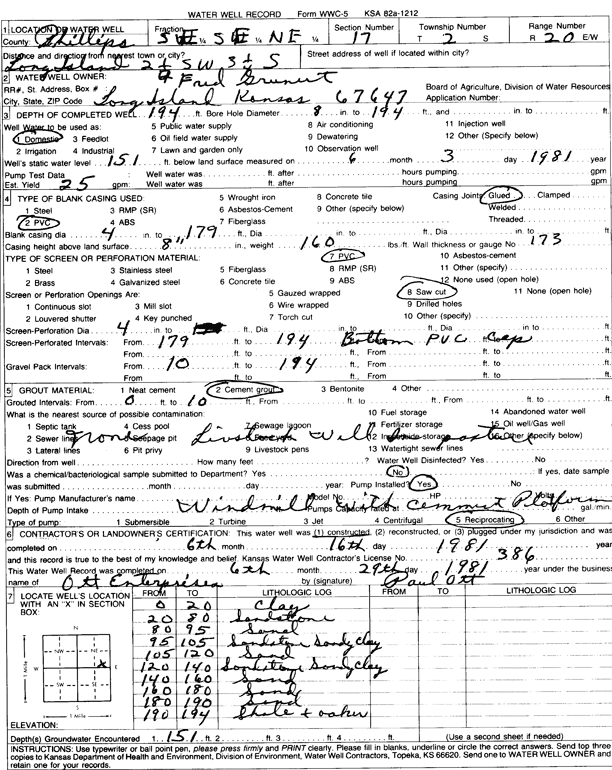 WATER WELL RECORD Form WWC-5 KSA 82a-1212
1 LOCATION OF WATER WELL Fraction Section Number Township Number Range Number
County: Phillips SE ¼ SE ¼ NE ¼ 17 T 2 S R 20 E/W
Distance and direction from nearest town or city? Street address of well if located within city?
Long Island 2½ SW 3½ S
2 WATER WELL OWNER: Fred Grunert
RR#, St. Address, Box # Board of Agriculture, Division of Water Resources
City, State, ZIP Code Long Island Kansas 67647 Application Number:
3 DEPTH OF COMPLETED WELL 194 ft. Bore Hole Diameter 8 in. to 194 ft., and in. to ft.
Well Water to be used as: 5 Public water supply 8 Air conditioning 11 Injection well
1 Domestic 3 Feedlot 6 Oil field water supply 9 Dewatering 12 Other (Specify below)
2 Irrigation 4 Industrial 7 Lawn and garden only 10 Observation well
Well's static water level 151 ft. below land surface measured on 6 month 3 day 1981 year
Pump Test Data : Well water was ft. after hours pumping gpm
Est. Yield 25 gpm: Well water was ft. after hours pumping gpm
4 TYPE OF BLANK CASING USED: 5 Wrought iron 8 Concrete tile Casing Joints: Glued Clamped
1 Steel 3 RMP (SR) 6 Asbestos-Cement 9 Other (specify below) Welded
2 PVC 4 ABS 7 Fiberglass Threaded
Blank casing dia 4 in. to 179 ft., Dia in. to ft., Dia in. to ft.
Casing height above land surface 8" in., weight 160 lbs./ft. Wall thickness or gauge No 173
TYPE OF SCREEN OR PERFORATION MATERIAL: 7 PVC 10 Asbestos-cement
1 Steel 3 Stainless steel 5 Fiberglass 8 RMP (SR) 11 Other (specify)
2 Brass 4 Galvanized steel 6 Concrete tile 9 ABS 12 None used (open hole)
Screen or Perforation Openings Are: 5 Gauzed wrapped 8 Saw cut 11 None (open hole)
1 Continuous slot 3 Mill slot 6 Wire wrapped 9 Drilled holes
2 Louvered shutter 4 Key punched 7 Torch cut 10 Other (specify)
Screen-Perforation Dia 4 in. to ft., Dia in. to ft., Dia in. to ft.
Screen-Perforated Intervals: From 179 ft. to 194 ft. Bottom PVC Cap
From ft. to ft., From ft. to ft.
Gravel Pack Intervals: From 10 ft. to 194 ft., From ft. to ft.
From ft. to ft., From ft. to ft.
5 GROUT MATERIAL: 1 Neat cement 2 Cement grout 3 Bentonite 4 Other
Grouted Intervals: From 0 ft. to 10 ft., From ft. to ft., From ft. to ft.
What is the nearest source of possible contamination: 10 Fuel storage 14 Abandoned water well
1 Septic tank 4 Cess pool 7 Sewage lagoon 11 Fertilizer storage 15 Oil well/Gas well
2 Sewer lines 5 Seepage pit 12 Insecticide storage 16 Other (specify below)
None Livestock Well in pasture
3 Lateral lines 6 Pit privy 9 Livestock pens 13 Watertight sewer lines
Direction from well How many feet ? Water Well Disinfected? Yes No
Was a chemical/bacteriological sample submitted to Department? Yes No If yes, date sample
was submitted month day year: Pump Installed? Yes No
If Yes: Pump Manufacturer's name Model No. HP Volts
Depth of Pump Intake Windmill with Cemmut Platform Pumps Capacity rated at gal./min.
Type of pump: 1 Submersible 2 Turbine 3 Jet 4 Centrifugal 5 Reciprocating 6 Other
6 CONTRACTOR'S OR LANDOWNER'S CERTIFICATION: This water well was (1) constructed, (2) reconstructed, or (3) plugged under my jurisdiction and was
completed on 6th month 16th day 1981 year
and this record is true to the best of my knowledge and belief. Kansas Water Well Contractor's License No. 386
This Water Well Record was completed on 6th month 29th day 1981 year under the business
name of Ott Enterprises by (signature) Paul Ott
7 LOCATE WELL'S LOCATION WITH AN "X" IN SECTION BOX:
FROM TO LITHOLOGIC LOG FROM TO LITHOLOGIC LOG
0 20 Clay
20 80 Sandstone
80 95 Sand
95 105 Sandstone Sandy clay
105 120 Sand
120 140 Sandstone Sandy clay
140 160 Sand
160 180 Sand
180 190 Sand
190 194 Shale + oaker
N
NW NE
W E
SW SE
S
1 Mile
1 Mile
ELEVATION:
Depth(s) Groundwater Encountered 1. 151 ft. 2. ft. 3. ft. 4. ft. (Use a second sheet if needed)
INSTRUCTIONS: Use typewriter or ball point pen, please press firmly and PRINT clearly. Please fill in blanks, underline or circle the correct answers. Send top three
copies to Kansas Department of Health and Environment, Division of Environment, Water Well Contractors, Topeka, KS 66620. Send one to WATER WELL OWNER and
retain one for your records.